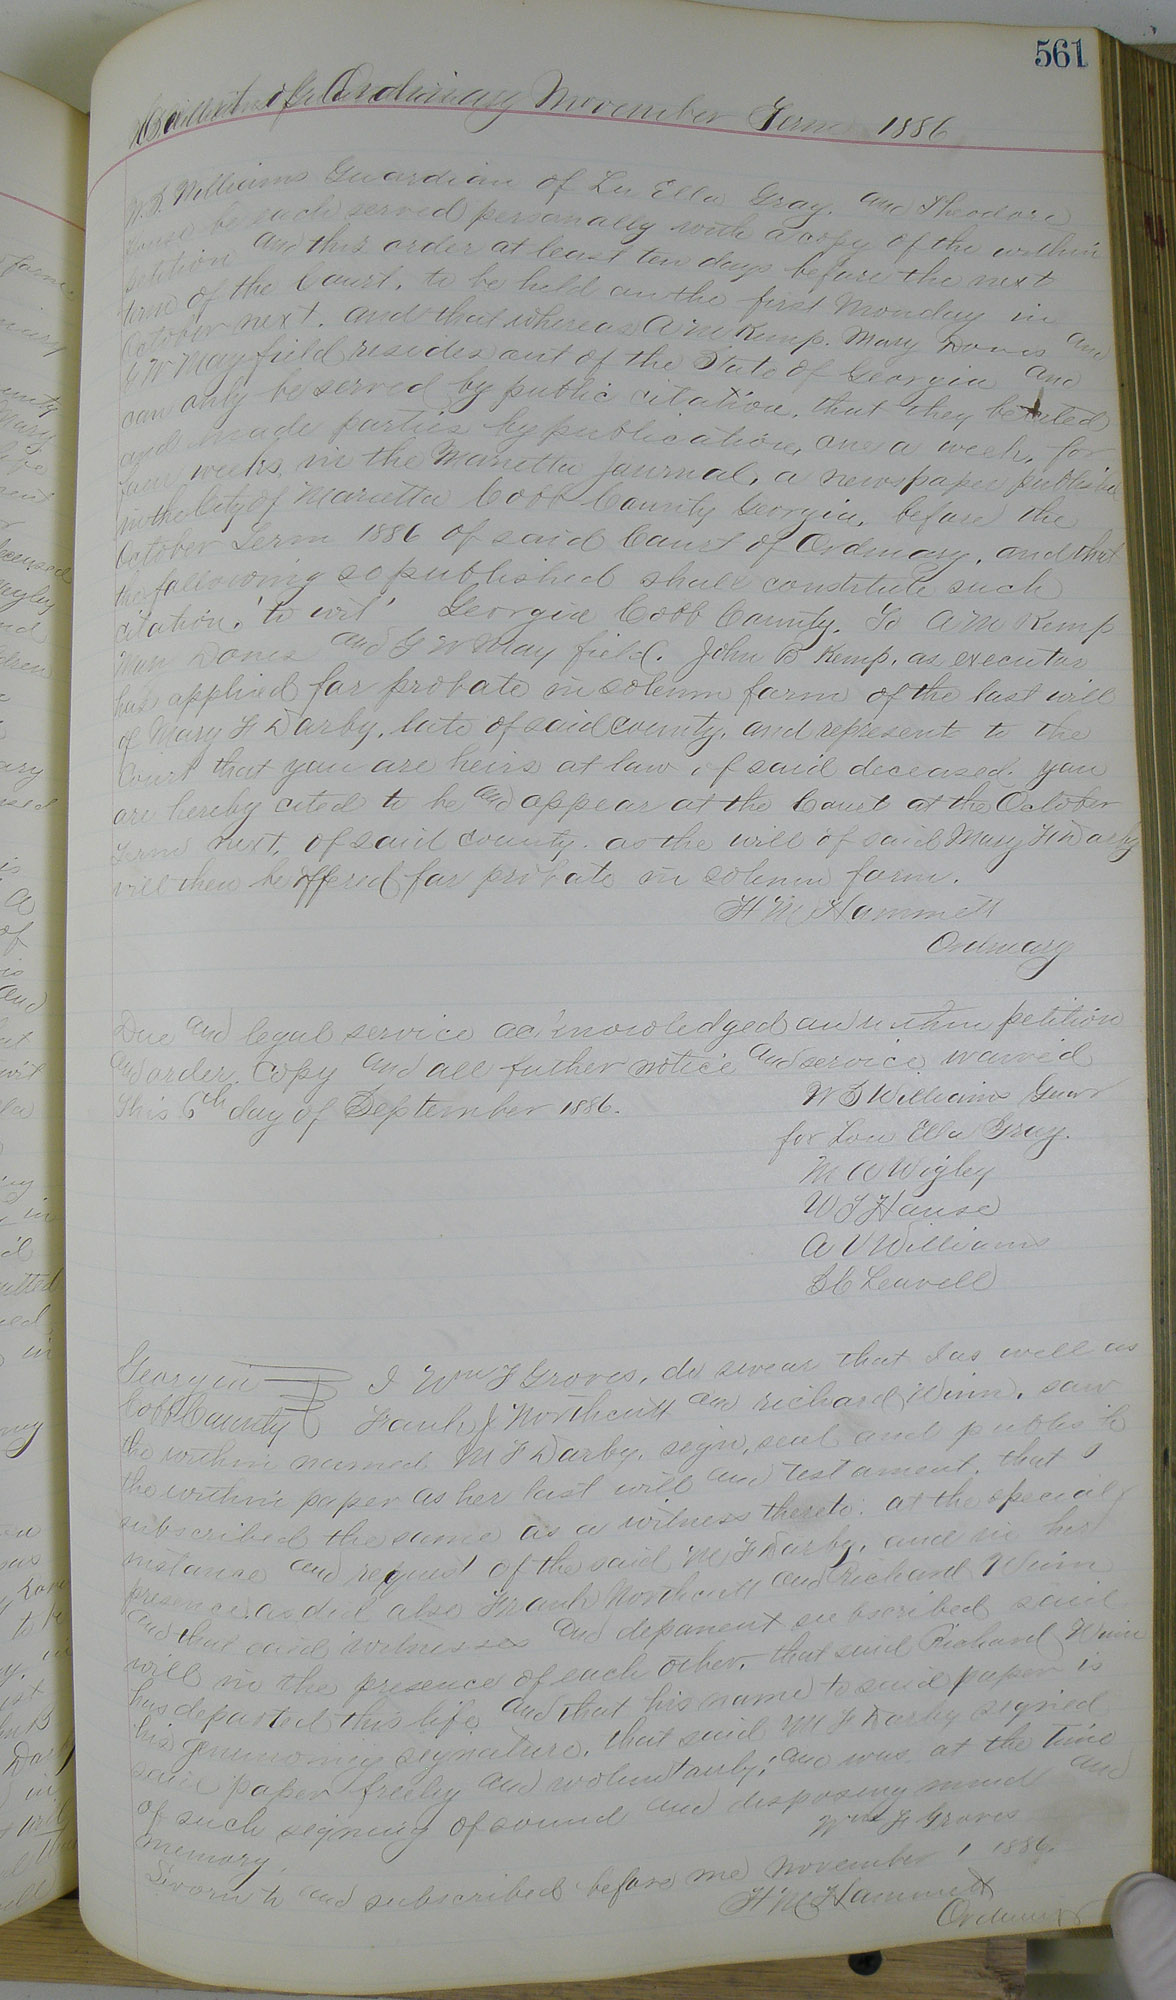 561
Court of Ordinary November Term 1886
W. S. Williams Guardian of Lu Ella Gray. and Theodore
House be each served personally with a copy of the within
petition and this order at least ten days before the next
term of the Court, to be held on the first Monday in
October next. and that whereas A M Kemp. Mary Dones and
G W Mayfield resides out of the State of Georgia and
can only be served by public citation, that they be cited
and made parties by publication, once a week, for
four weeks, in the Marietta Journal, a newspaper published
in the City of Marietta Cobb County Georgia, before the
October Term 1886 of said Court of Ordinary, and that
the following so published shall constitute such
citation, 'to wit' Georgia Cobb County. To A M Kemp
Mary Dones and G W Mayfield. John B Kemp, as executor
has applied for probate in solemn form of the last will
of Mary F Darby, late of said county, and represents to the
Court that you are heirs at law of said deceased. you
are hereby cited to be and appear at the Court at the October
Term next, of said county. as the will of said Mary F Darby
will then be offered for probate in solemn form.
H M Hammett
Ordinary
Due and legal service acknowledged on within petition
and order. Copy and all futher notice and service waived
This 6th day of September 1886.
W S Williams Guar
for Lou Ella Gray.
M A Wigley
W T Hause
A V Williams
S C Leavell
Georgia
Cobb County
I Wm F Groves, do swear that I as well as
Frank J Northcutt and Richard Winn, saw
the within named M F Darby, sign, seal and publish
the within paper as her last will and testament. that I
subscribed the same as a witness thereto. at the special
instance and request of the said M F Darby, and in her
presence. as did also Frank Northcutt and Richard Winn
and that said witnesses and deponent subscribed said
will in the presence of each other. that said Richard Winn
has departed this life and that his name to said paper is
his genuine signature, that said M F Darby signed
said paper freely and voluntarily, and was at the time
of such signing of sound and disposing mind and
memory.
Wm F Groves
Sworn to and subscribed before me November 1 1886.
H M Hammett
Ordinary